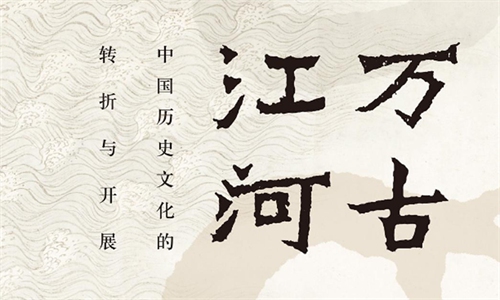 万古
江河
中国历史文化的
转折与开展